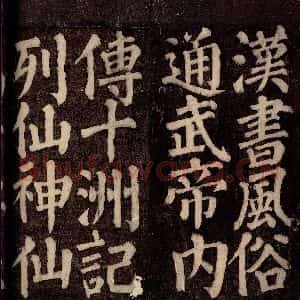 漢書風俗
通武帝内
傳十洲記
列仙神仙